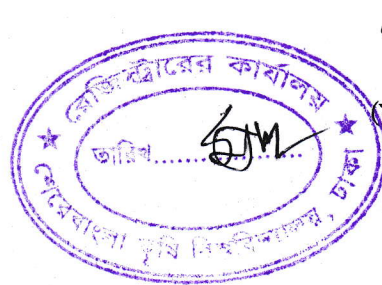 রেজিস্ট্রারের কার্যালয়
তারিখ......................
শেরেবাংলা কৃষি বিশ্ববিদ্যালয়, ঢাকা